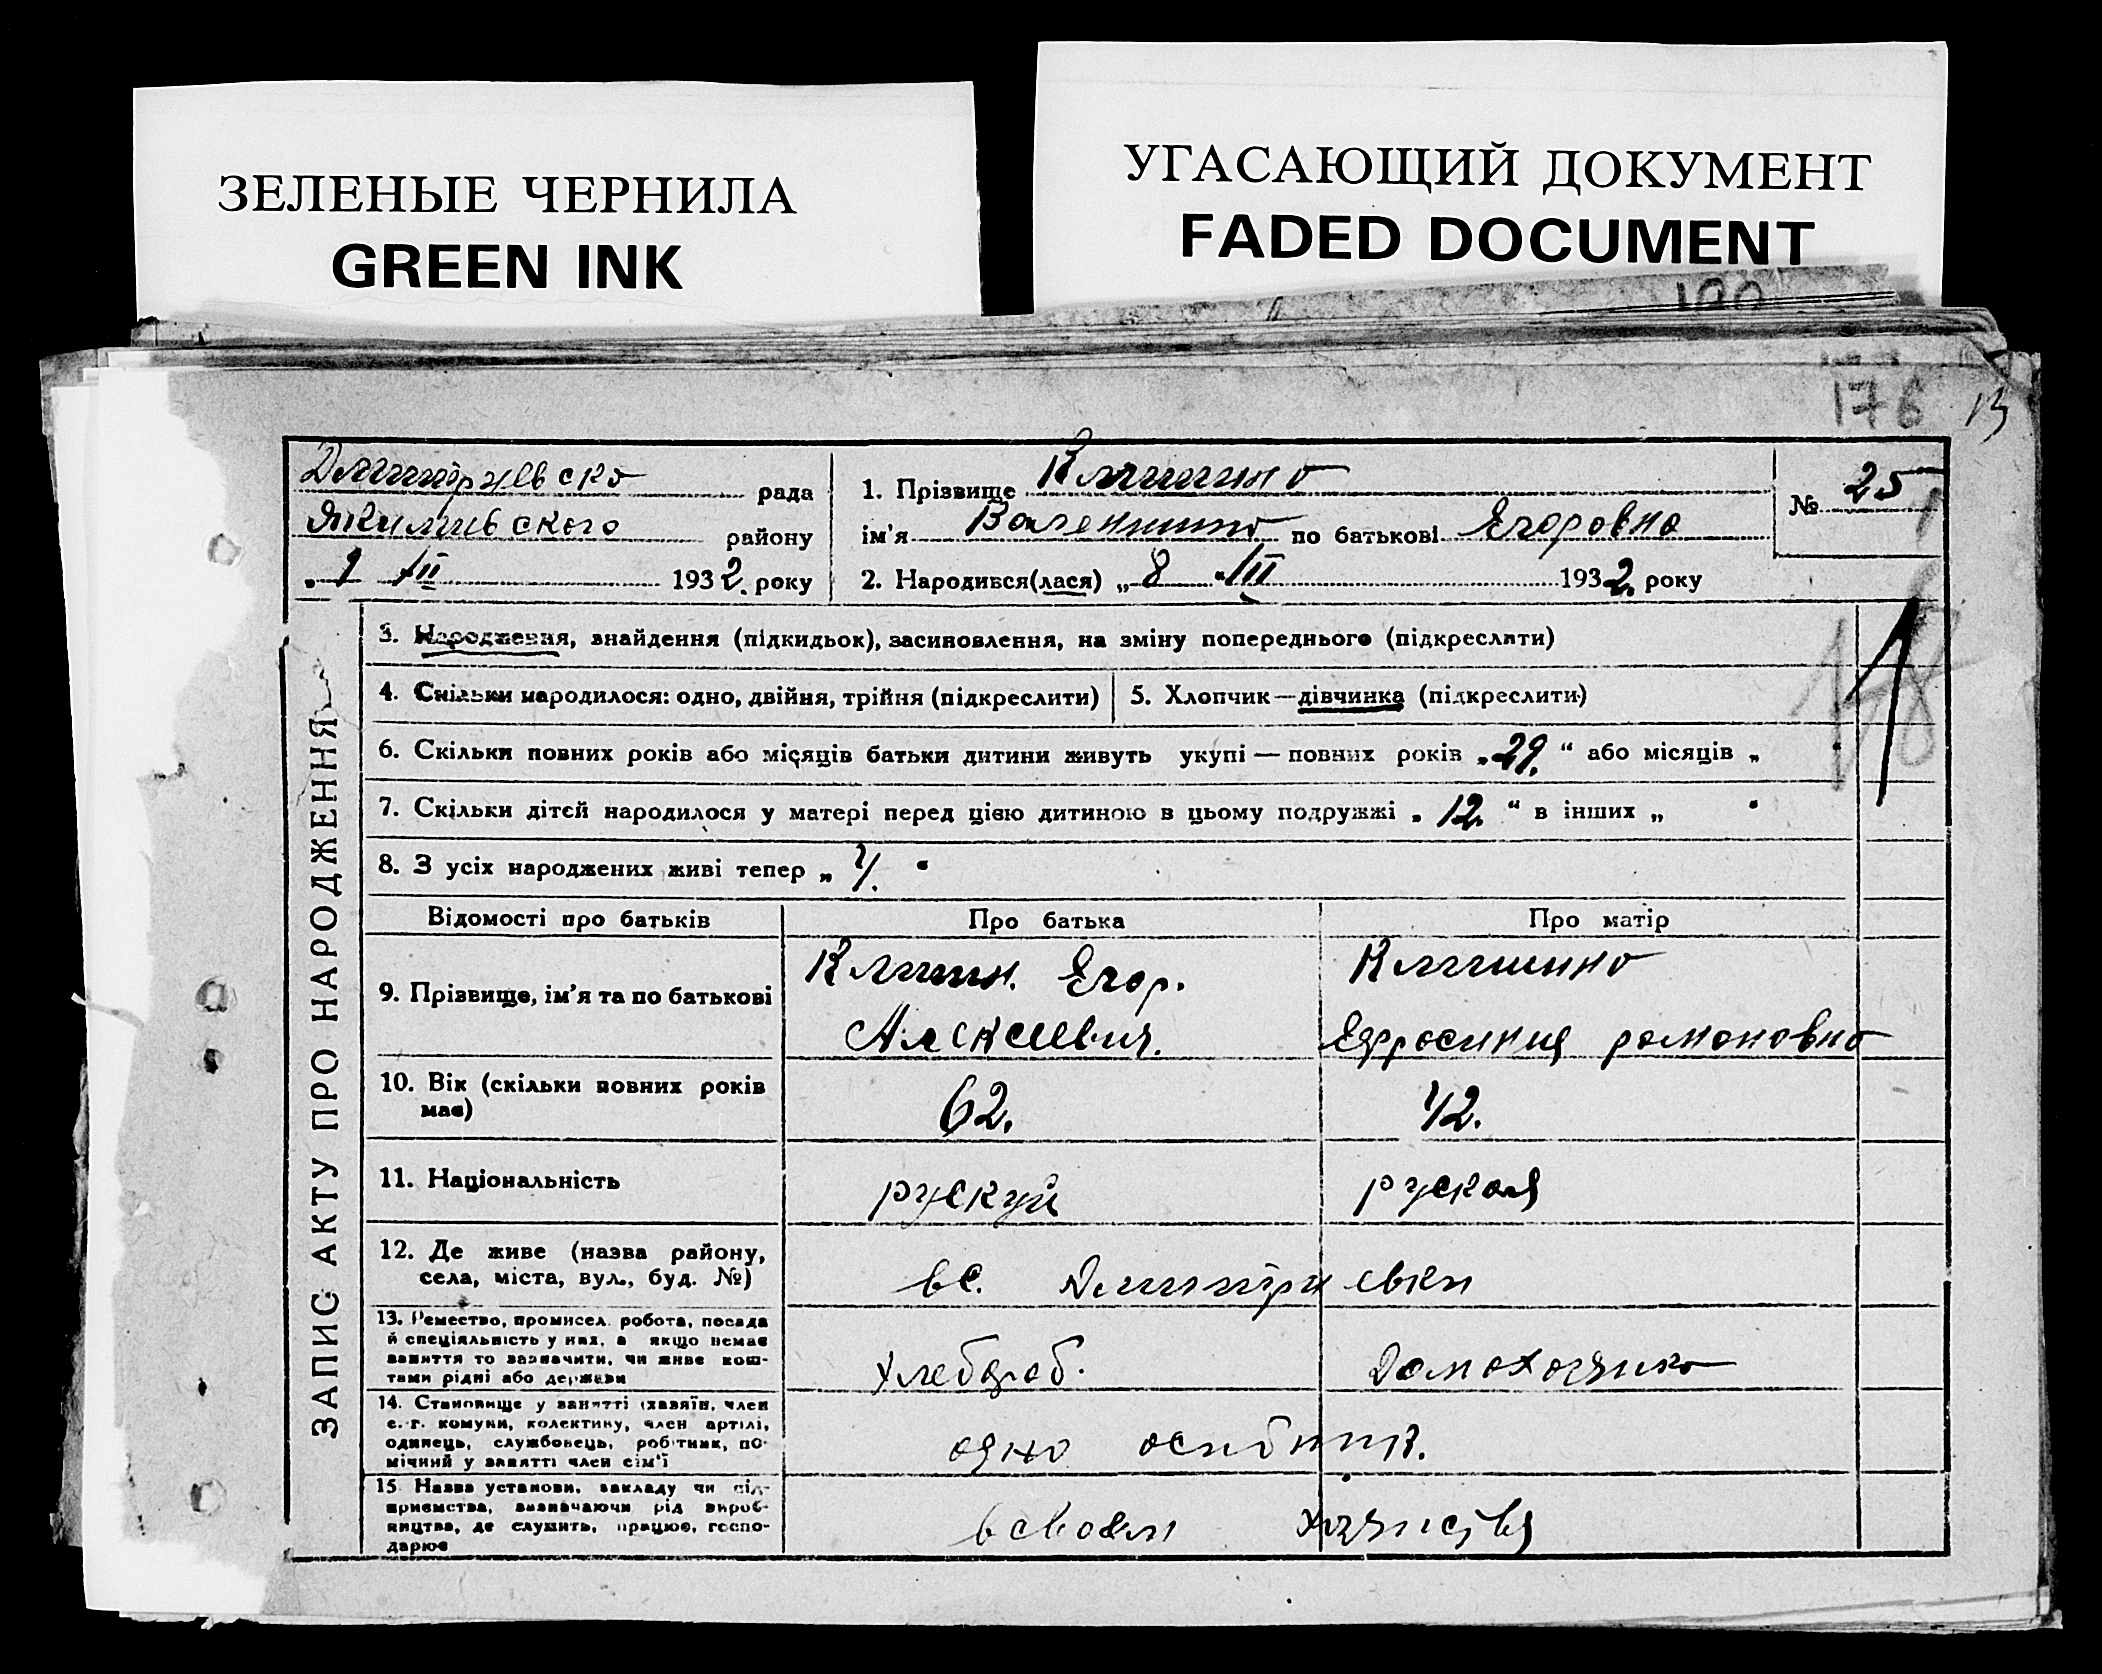 ЗЕЛЕНЫЕ ЧЕРНИЛА
GREEN INK
УГАСАЮЩИЙ ДОКУМЕНТ
FADED DOCUMENT
190
176 13
Дмитрževско рада
Якимивского району
1 /III 1932. року
1. Прізвище
ім'я Валентина по батькові Егоровна
2. Народився(лася) „ 8 " /III 1932. року
№ 25
ЗАПИС АКТУ ПРО НАРОДЖЕННЯ
3. Народження, знайдення (підкидьок), засиновлення, на зміну попереднього (підкреслити)
4. Скільки народилося: одно, двійня, трійня (підкреслити)
5. Хлопчик — дівчинка (підкреслити)
6. Скільки повних років або місяців батьки дитини живуть укупі — повних років „ 29. " або місяців „ "
7. Скільки дітей народилося у матері перед цією дитиною в цьому подружжі „ 12. " в інших „ "
8. З усіх народжених живі тепер „ "
Відомості про батьків Про батька Про матір
9. Прізвище, ім'я та по батькові
Егор.
Алексеевич.
Ефросиния романовна
10. Вік (скільки повних років має)
62. 42.
11. Національність
рускуй руская
12. Де живе (назва району,
села, міста, вул., буд. №)
вс. Дмитриевки
13. Ремество, промисел, робота, посада
й спеціяльність у них, а якщо немає
заняття то зазначити, чи живе кош-
тами рідні або держави
хлебороб. Домохозяйко
14. Становище у занятті (хазяїн, член
с.-г. комуни, колективу, член артілі,
одинець, службовець, робітник, по-
мічний у занятті член сім'ї
одно
15. Назва установи, закладу чи під-
приємства, визначаючи рід вироб-
ництва, де служить, працює, госпо-
дарює
всвоем